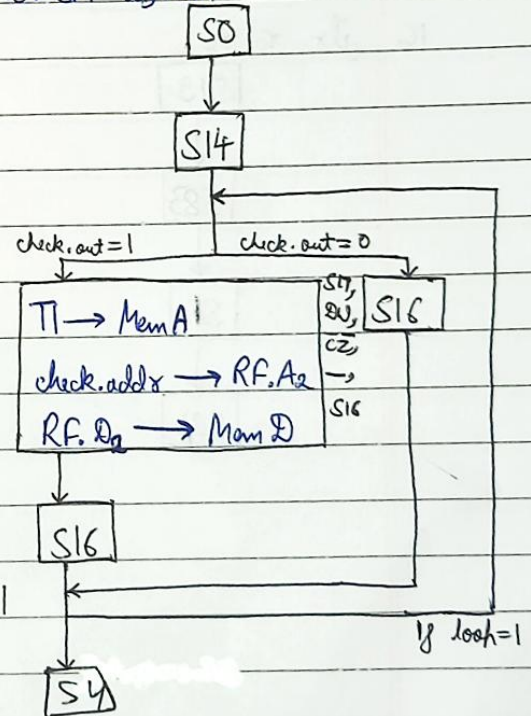 S0
S14
check.out=1
check.out=0
T1 → Mem A
check.addr → RF.A2
RF.D2 → Mem D
S17,
CZ,
→,
S16
S16
S16
If loop=1
S4